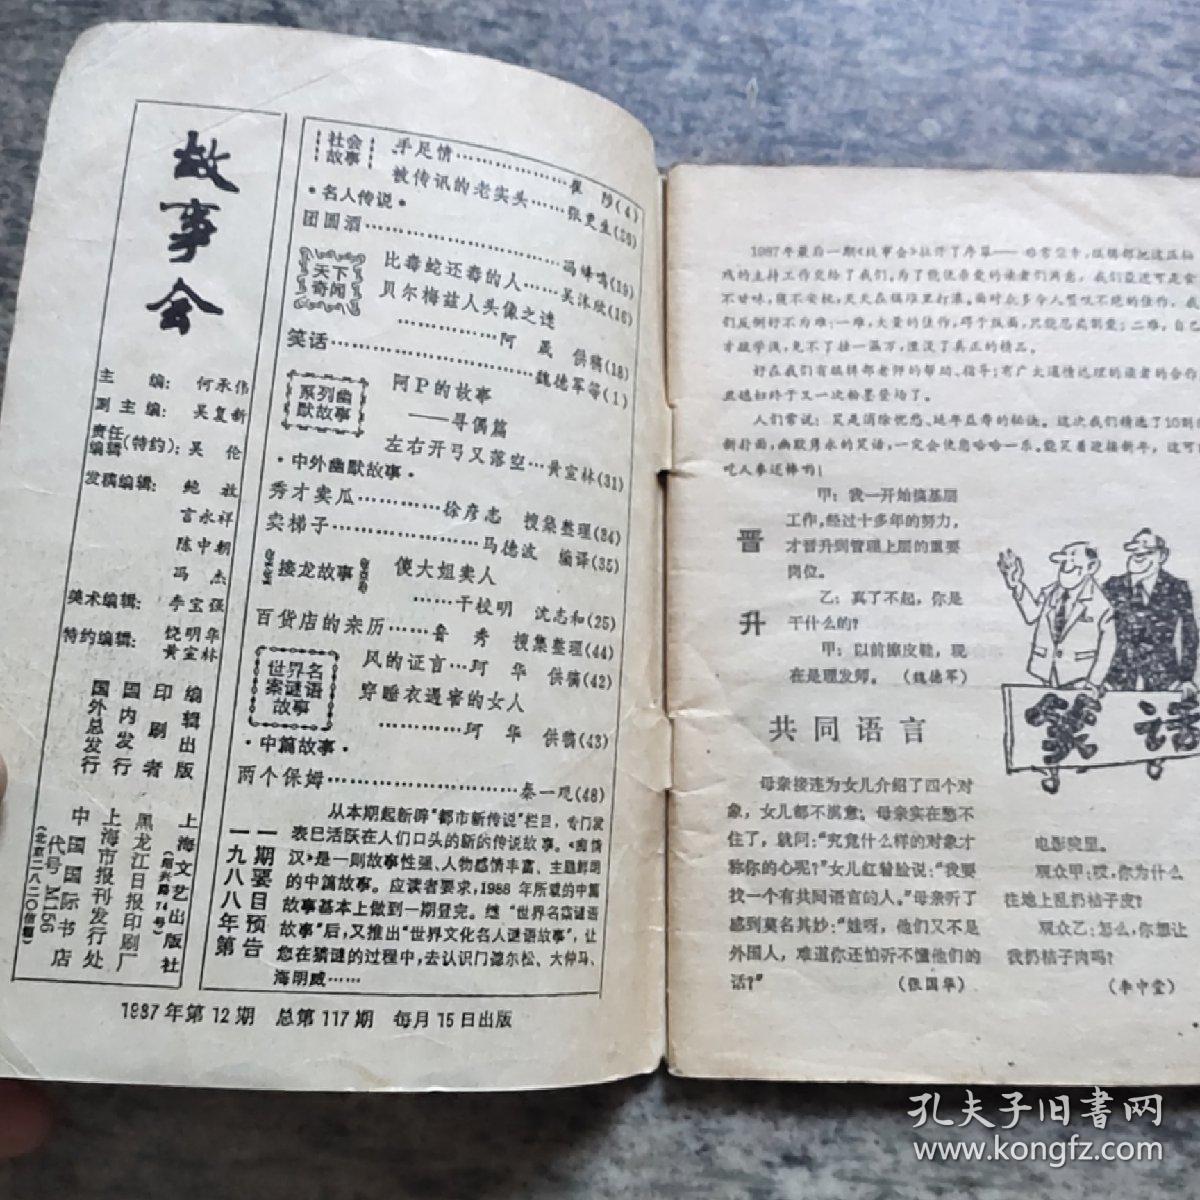 故事会
主 编: 何承伟
副主编: 吴复新
责任编辑(特约): 吴 伦
发稿编辑: 鲍 放
言永祥
陈中朝
冯 杰
美术编辑: 李宝强
特约编辑: 饶明华
黄宣林
编辑出版 上海文艺出版社
(绍兴路74号)
印刷者 黑龙江日报印刷厂
国内发行 上海市报刊发行处
国外总发行 中国国际书店
代号 M166
社会故事
手足情
被传讯的老实头……张更生(26)
·名人传说·
团圆酒……冯峰鸣(19)
天下奇闻
比毒蛇还毒的人……吴沐欣(16)
贝尔梅兹人头像之谜
……阿 晟 供稿(18)
笑话……魏德军等(1)
系列幽默故事
阿P的故事
——寻偶篇
左右开弓又落空…黄宣林(31)
·中外幽默故事·
秀才卖瓜……徐彦志 搜集整理(34)
卖梯子……马德波 编译(35)
接龙故事
傻大姐卖人
……干校明 沈志和(25)
百货店的来历……音 秀 搜集整理(44)
世界名案谜语故事
风的证言…珂 华 供稿(42)
穿睡衣遇害的女人
……珂 华 供稿(43)
·中篇故事·
两个保姆……秦一观(48)
一九八八年第一期要目预告
从本期起新辟“都市新传说”栏目,专门发
表已活跃在人们口头的新的传说故事。
汉》是一则故事性强、人物感情丰富、主题鲜明
的中篇故事。应读者要求,1988年所载的中篇
故事基本上做到一期登完。继“世界名案谜语
故事”后,又推出“世界文化名人谜语故事”,让
您在猜谜的过程中,去认识门德尔松、大仲马、
海明威……
1987年第12期 总第117期 每月15日出版
1987年最后一期《故事会》拉开了序幕——
戏的主持工作交给了我们,为了能使亲爱的读者们满意,我们最近可是食
不甘味,寝不安枕,天天在稿堆里打滚。面对众多令人赞叹不绝的佳作,我
们反倒好不为难:一难,大量的佳作,碍于版面,只能忍痛割爱;二难,自己
才疏学浅,免不了挂一漏万,湮没了真正的精品。
好在我们有编辑部老师的帮助、指导;有广大通情达理的读者的合作,
丑媳妇终于又一次粉墨登场了。
人们常说:笑是消除忧愁、延年益寿的秘诀。这次我们精选了10则
新针面,幽默隽永的笑话,一定会使您哈哈一乐。能笑着迎接新年,这可
吃人参还棒哟!
晋升
甲:我一开始搞基层
工作,经过十多年的努力,
才晋升到管理上层的重要
岗位。
乙:真了不起,你是
干什么的?
甲:以前擦皮鞋,现
在是理发师。 (魏德军)
笑话
共同语言
母亲接连为女儿介绍了四个对
象,女儿都不满意;母亲实在憋不
住了,就问:“究竟什么样的对象才
称你的心呢?”女儿红着脸说:“我要
找一个有共同语言的人。”母亲听了
感到莫名其妙:“娃呀,他们又不是
外国人,难道你还怕听不懂他们的
话?” (张国华)
电影院里。
观众甲:哎,你为什么
往地上乱扔桔子皮?
观众乙:怎么,你想让
我扔桔子肉吗?
(李中堂)
孔夫子旧书网
www.kongfz.com